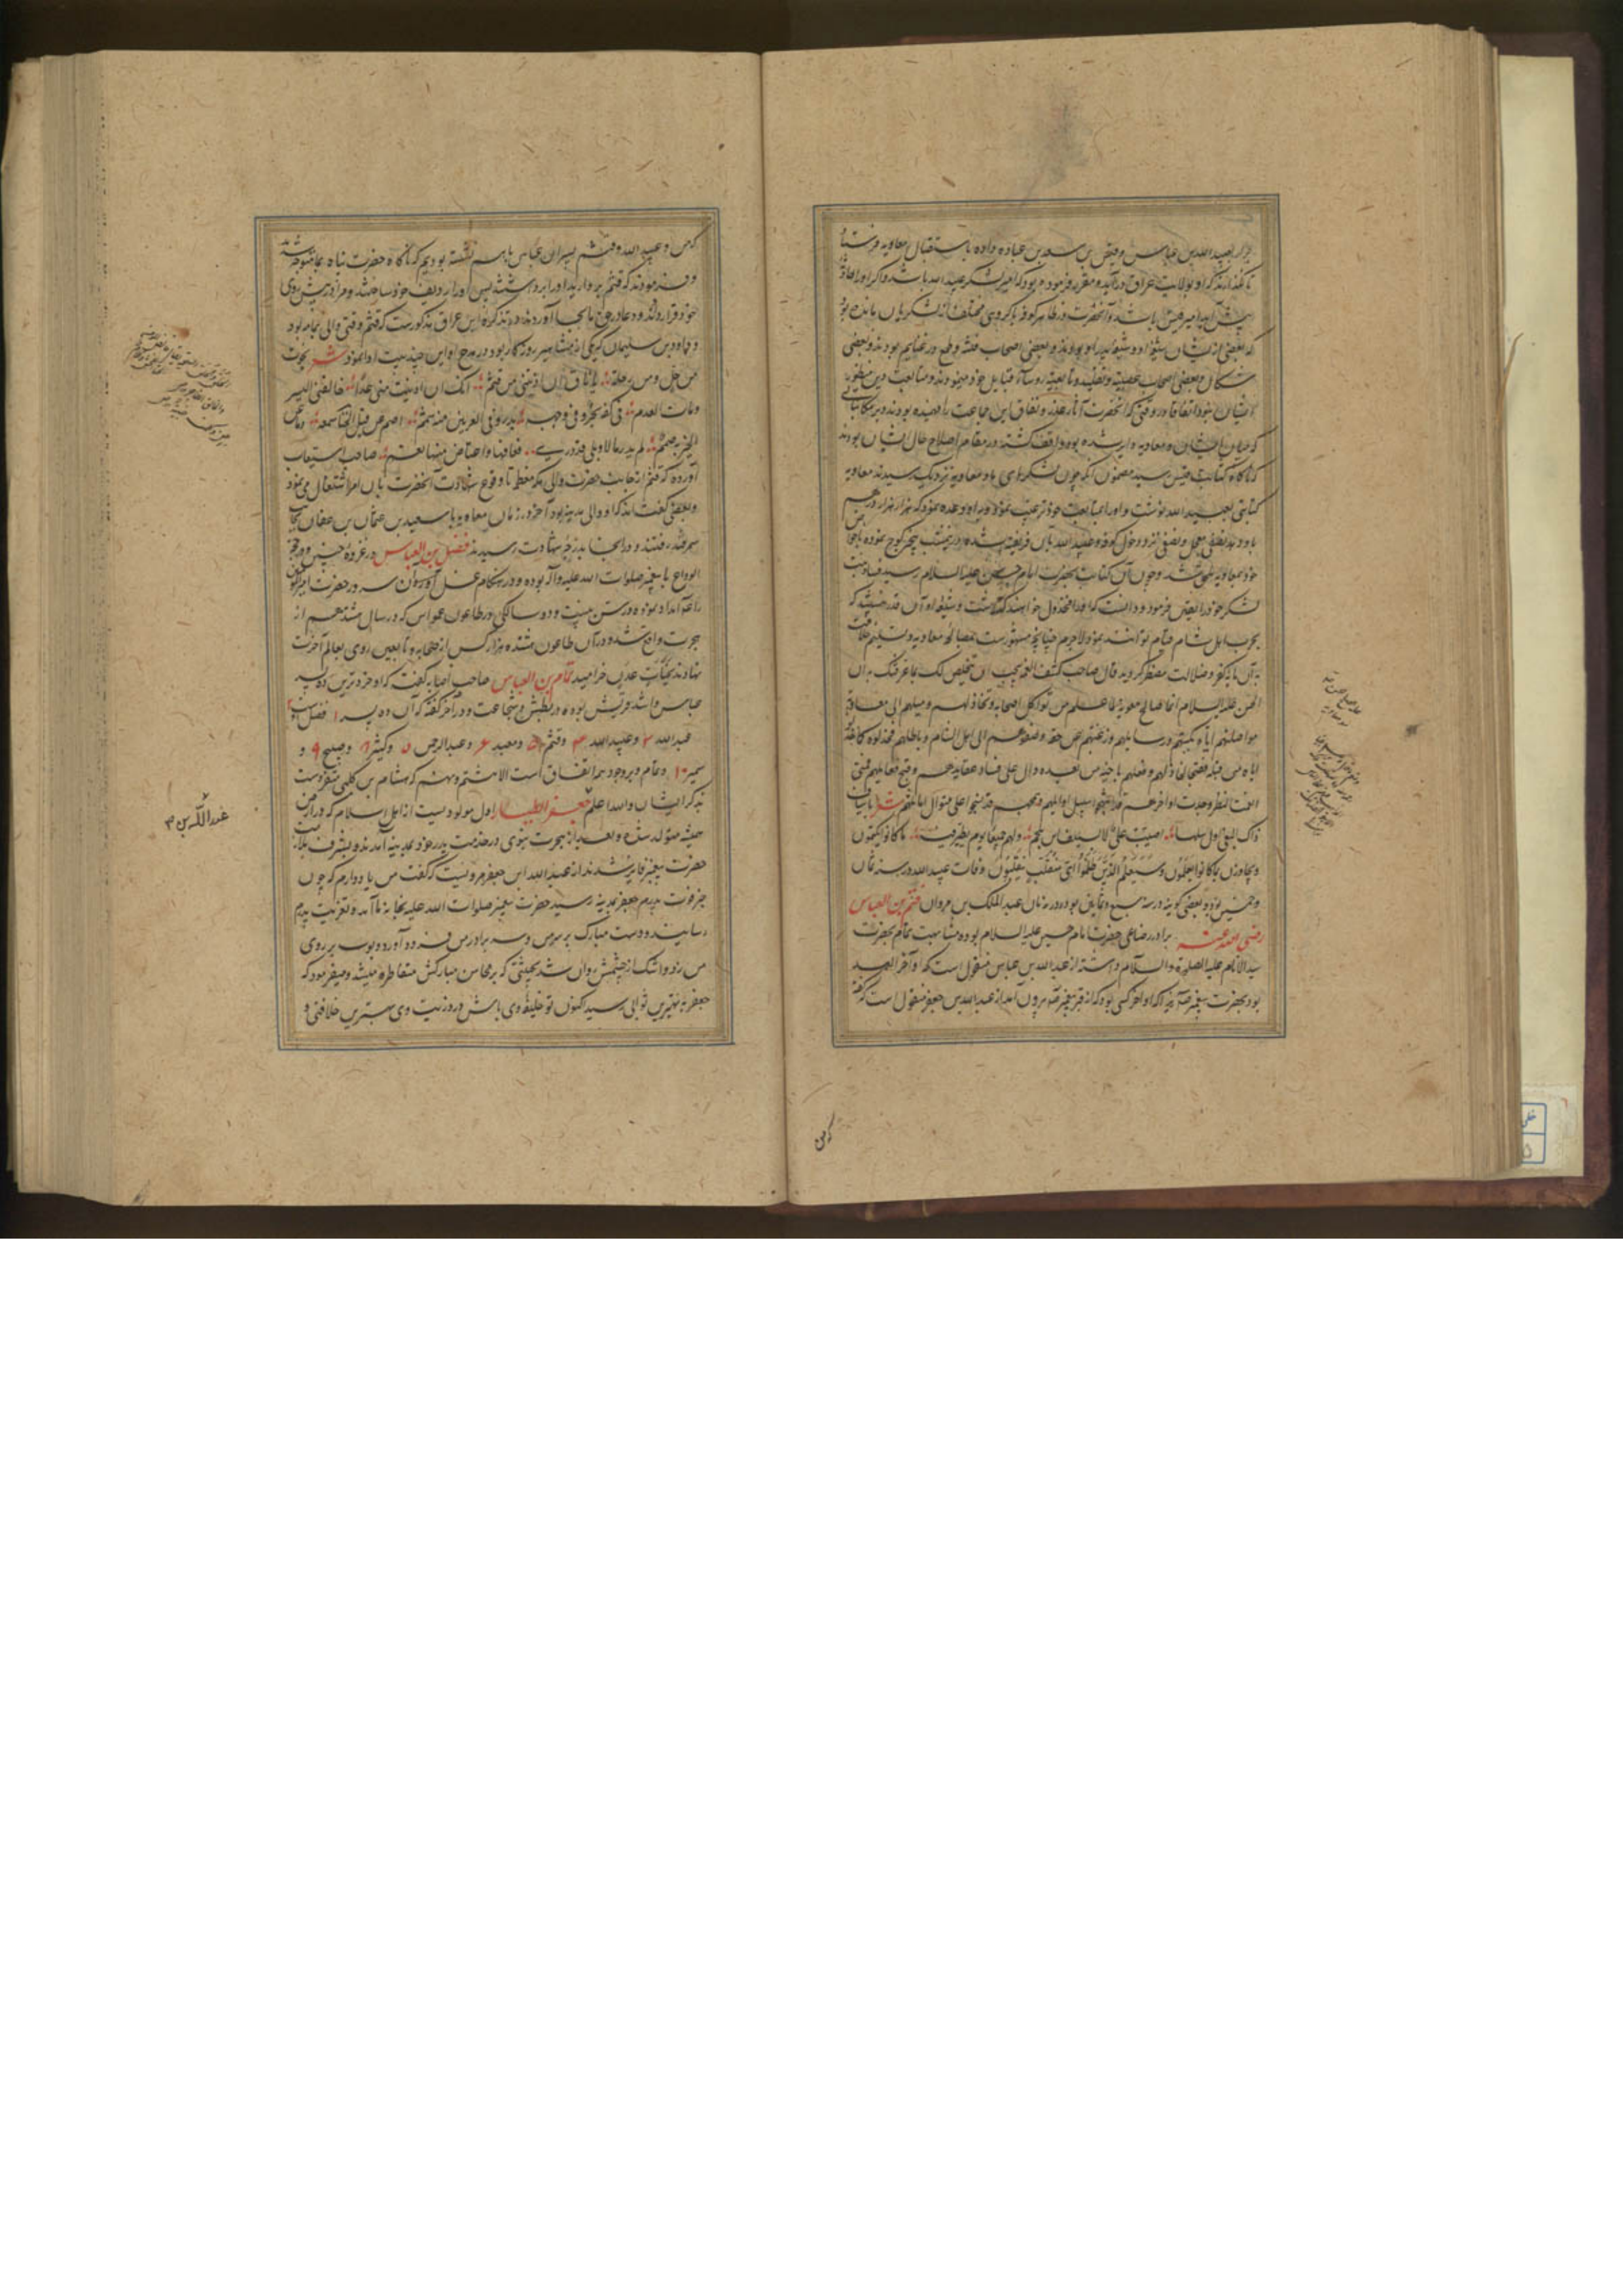 هزار بعبید الله بن عباس و قیس بن سعد بن عباده داده باستقبال معاویه فرستاد
تا نگذارند که او بولایت عراق درآید و مقرر فرموده بود که امیر لشکر عبید الله باشد و اگر او را حادثه
پیش آید امیر قیس باشد و آنحضرت در ظاهر کوفه با گروهی مختلف از لشکریان بمانده بود
که بعضی از ایشان شیعه او و شیعه پدر او بودند و بعضی اصحاب فتنه و طمع در غنایم بودند و بعضی
شکاک و بعضی اصحاب عصبیت و تقلید و تابعیه روسآء قبایل خود میبودند و متابعت دین منظور
ایشان نبود اتفاقا در وقتی که آنحضرت آثار غدر و نفاق این جماعت را فهمیده بودند و بر مکاتباتی
که میان ایشان و معاویه دایر شده بود واقف گشته در مقام اصلاح حال ایشان بودند
که ناگاه کتابت قیس رسید مضمون آنکه چون لشکر ما و معاویه نزدیک رسیدند معاویه
کتابتی بعبید الله نوشت و او را بمتابعت خود ترغیب نمود و او را وعده نمود که هزار هزار درهم
باو دهد نصفی معجل و نصفی نزد دخول کوفه و عبید الله بآن فریفته شده در نیمشب کوچ نموده با خواص
خود بمعاویه ملحق شد و چون آن کتابت بحضرت امام حسن علیه السلام رسید فساد نیت
لشکر خود را یقین فرمود و دانست که او را مخذول خواهند گذاشت و شیعه او آن قدر نیستند که
بحرب اهل شام قیام توانند نمود لاجرم چنانچه مشهورست بمصالحه معاویه و تسلیم خلافت
بآن مایه کفر و ضلالت مضطر گردید قال صاحب کشف الغمه یجب ان تتخلص لک مما عرفتک به ان
الحسن علیه السلام انما صالح معویة لما علم من تواکل اصحابه و تخاذلهم و میلهم الی معاویة
مواصلتهم ایاه بکتبهم و رسایلهم و رغبتهم عن حقه و صغوهم الی اهل الشام و باطلهم فخذلوه کما خذلوا
اباه من قبله فقبحا لمخاذلهم و فعلهم بابنه من بعده دال علی فساد عقایدهم و قبح فعایلهم فمتی
امعنت النظر وجدت اواخرهم قد انتهجوا سبیل اوایلهم و نسجوا علی منوال اباطیلهم شعر
ذاک البغی اول سلها اصیب علی لا بسیف ابن ملجم و لهم جمیعا یوم یظهر فیه ما کانوا یکتمون
و یجازون بما کانوا یعملون وَسَیَعْلَمُ الَّذینَ ظَلَمُوا اَیَّ مُنْقَلَبٍ یَنْقَلِبُونَ وفات عبید الله در سنه ثمان
و خمسین بوده و بعضی گویند در سنه سبع و ثمانین بوده در زمان عبد الملک بن مروان قثم بن العباس
رضی الله عنه برادر رضاعی حضرت امام حسین علیه السلام بوده مشابهت تمام بحضرت
سید الانام علیه الصلوة والسلام داشته از عبد الله بن عباس منقول است که او آخر العهد
بود بحضرت پیغمبر زیرا که او آخر کسی بود که از قبر پیغمبر بیرون آمد از عبد الله بن جعفر منقول است که گفت
که من
که من و عبید الله و قثم پسران عباس باهم نشسته بودیم که ناگاه حضرت بما متوجه شدند
و فرمودند که قثم بر دارید او را برداشتند پس او را ردیف خود ساختند و مرا در پیش روی
خود قرار دادند و دعا در حق ما بجا آوردند و در تذکره ابن عراق مذکورست که قثم وقتی والی یمامه بود
و داود بن سلیمان که یکی از مشاهیر روزگار بود در مدح او این چند بیت ادا نمود شعر نجوت
من حل و من رحلة یا ناق ان ادنیتنی من قثم انک ان ادنیت منی غدا خالفنی الیسر
و مات العدم فی کفه بحر و فی وجهه بدر و فی العرنین منه شمم اصم عن قیل الخنا سمعه و ما عن
الخیر به صمم لم یدر ما لا و بلی قد دری فعافها و اعتاض منها نعم صاحب استیعاب
آورده که قثم از جانب حضرت والی مکه معظمه تا وقوع شهادت آنحضرت بآن امر اشتغال می نمود
و بعضی گفته اند که او والی مدینه بود آخر در زمان معاویه با سعید بن عثمان بن عفان بجانب
سمرقند رفتند و در آنجا بدرجه شهادت رسید فضل بن العباس در غزوه حنین و حجة
الوداع با پیغمبر صلوات الله علیه و آله بوده و در هنگام غسل آن سرور حضرت امیر المؤمنین
را امداد نموده در سن بیست و دو سالگی در طاعون عمواس که در سال هشدهم از
هجرت واقع شد و در آن طاعون هشتده هزار کس از صحابه و تابعین روی بعالم آخرت
نهادند بجنات عدن خرامید تمام بن العباس صاحب اصابه گفت که او خردترین ده پسر
عباس و اشد قریش بوده در بطش و شجاعت و در آخر گفته که آن ده پسر ۱ فضل است
عبد الله ۳ و عبید الله ۴ و قثم ۵ و معبد ۶ و عبد الرحمن ۷ و کثیر ۸ و صبیح ۹ و
سمیر ۱۰ و تمام و بر وجود همه اتفاق است الا هشتم و نهم که هشام بن کلبی متفردست
بذکر ایشان والله اعلم جعفر الطیار اول مولودیست از اهل اسلام که در ارض
حبشه متولد شد و بعد از هجرت نبوی در خدمت پدر خود بمدینه آمدند و بشرف ملازمت
حضرت پیغمبر فایز شدند از عبد الله ابن جعفر مرویست که گفت من یاد دارم که چون
خبر فوت پدرم جعفر بمدینه رسید حضرت پیغمبر صلوات الله علیه بخانه ما آمد و تعزیت پدرم
رسانید و دست مبارک بر سر من و سر برادر من فرود آورد و بوسه بر روی
من زد و اشک از چشمش روان شد بحیثیتی که بر محاسن مبارکش متقاطر میشد و میفرمود که
جعفر به بهترین ثوابی رسید اکنون تو خلیفه وی باش در ذریت وی بهترین خلافتی و
عبد الله بن